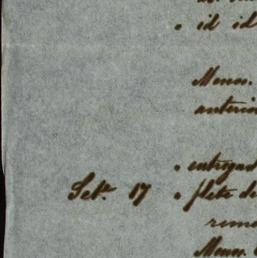 " id id
Menos.
anterio
" entregad
Set.e 17 " flete de
rem
Menos.